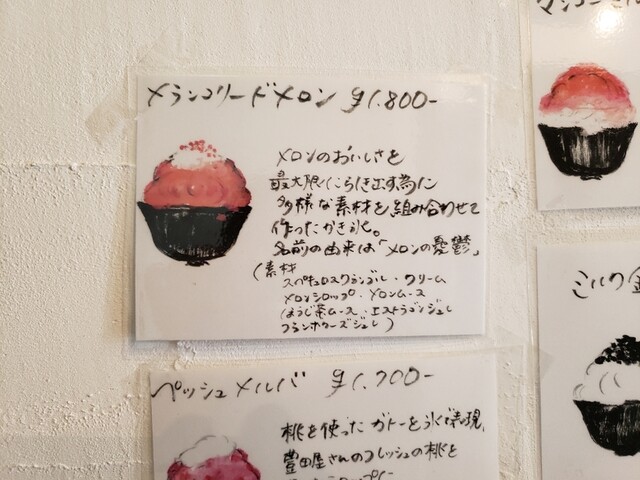 メランコリードメロン ¥1.800-
メロンのおいしさを
最大限にらき出す為に
多様な素材を組み合わせて
作ったかき氷。
名前の由来は「メロンの憂鬱」
(素材
スペキュロスクランブル・クリーム
メロンシロップ・メロンムース
ほうじ茶ムース・エストラゴンジュレ
フランボワーズジュレ)
ペッシュメルバ ¥1.700-
桃を使ったガトーを氷で表現。
豊田屋さんのフレッシュの桃を
ミルク金